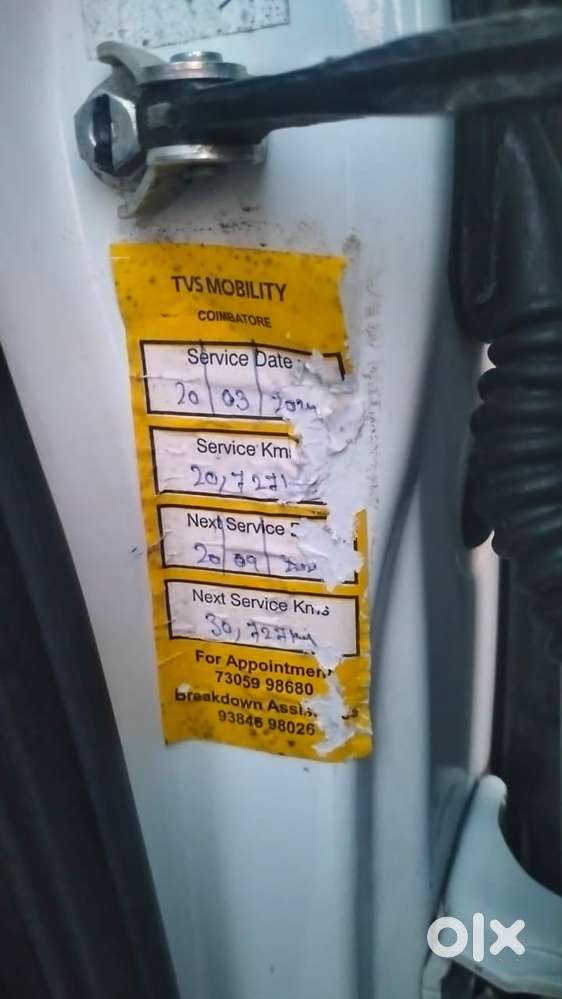 TVS MOBILITY
COIMBATORE
Service Date
20 | 03 |
Service Km
20,727
Next Service
20 | 09 |
Next Service Kms
30,727
For Appointment
73059 98680
Breakdown
93846 98026
olx